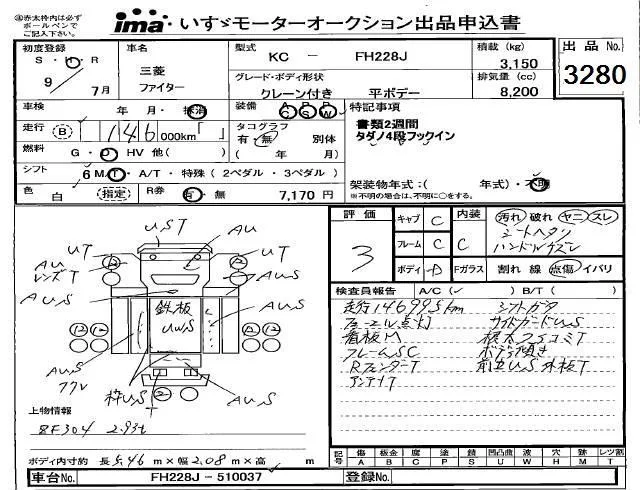 ※赤太枠内は必ず
ボールペンで
ご記入下さい。
ima いすゞモーターオークション出品申込書
初度登録
S・H・R
9/7月
車名
三菱
ファイター
型式
KC － FH228J
積載 (kg)
3,150
出品No.
3280
グレード・ボディ形状
クレーン付き 平ボデー
排気量 (cc)
8,200
車検
年 月・抹消
装備
特記事項
書類2週間
タダノ4段フックイン
走行 B 146 000km「 」
タコグラフ
有・無 別体
( 年 月)
燃料 G・D HV 他( )
シフト 6 M/T・A/T・特殊 ( 2ペダル・3ペダル )
架装物年式:( 年式)・不明
※不明の場合は、不明に○をする。
色 白 (指定)
R券 有・無 7,170 円
評価
3
キャブ C
フレーム C
ボディ D
内装
C
Fガラス
汚れ 破れ ヤニ スレ
シートヘタリ
ハンドルスレ
割れ 線 点傷 イバリ
UST
UT
AU
レンズT
AU
UT
AUS
AUS
鉄板
UWS
AUS
AUS
枠US
T
AUS
検査員報告 A/C( ✓ ) B/T( )
走行146995km シフトガタ
フューエル点灯 サイドガードUS
看板M 根太フィコミT
フレームSC ボデー傾き
RフェンダーT 前立US 外板T
アンテナT
上物情報
ZF304 2.93t
ボディ内寸約 長5.46m×幅2.08m×高 m
記号
傷 A
板金 B
腐 C
塗 P
錆 S
凹凸曲 U
波 W
穴 H
跡 M
レツ割 T
車台No. FH228J－510037
登録No.